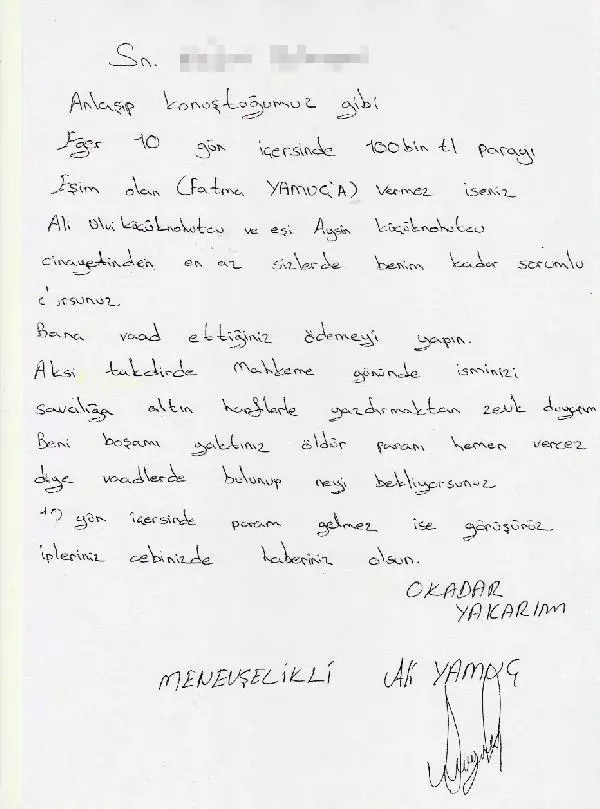 Sn.
Anlaşıp konuştuğumuz gibi
Eğer 10 gün içersinde 100bin tl parayı
Eşim olan (Fatma YAMUÇ'A) vermez iseniz
Ali Ulvi küçüknohutcu ve eşi Aysin küçüknohutcu
cinayetinden en az sizlerde benim kadar sorumlu
olursunuz.
Bana vaad ettiğiniz ödemeyi yapın.
Aksi takdirde Mahkeme gününde isminizi
savcılığa altın harflerle yazdırmaktan zevk duyarım
Beni boşamı yaktınız öldür paranı hemen vercez
diye vaadlerde bulunup neyi bekliyorsunuz
10 gün içersinde param gelmez ise görüşürüz.
ipleriniz cebinizde haberiniz olsun.
OKADAR
YAKARIM
MENEVŞELİKLİ Ali YAMUÇ